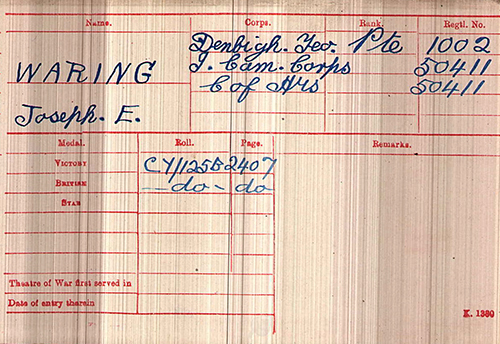 Name. Corps. Rank. Regtl. No.
Denbigh. Yeo. Pte 1002
WARING I. Cam. Corps 50411
C of Hrs 50411
Joseph. E.
Medal. Roll. Page. Remarks.
VICTORY CY/125B 2407
BRITISH —do- do
STAR
Theatre of War first served in
Date of entry therein
K. 1380